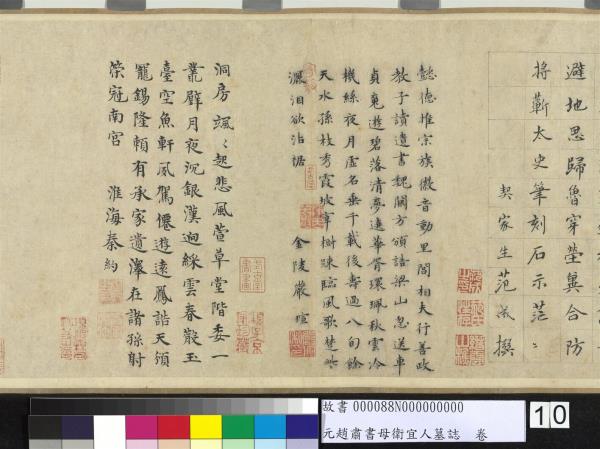 避地思歸魯穿塋冀合防
將蘄太史筆刻石示茫〻
契家生范 撰
懿德惟宗族徽音動里閭相夫行善政
教子讀遺書魏闕方頒誥梁山忽送車
貞魂遊碧落清夢遶華胥環珮秋雲冷
機絲夜月虛名垂千載後壽過八旬餘
天水孫枝秀霞坡宰樹疎臨風歌楚些
灑泪欲沾裾 金陵嚴瑄
洞房颯〻起悲風萱草堂階委一
叢壁月夜沉銀漢迥綵雲春散玉
臺空魚軒夙駕僊遊遠鳳誥天頒
寵錫隆賴有承家遺澤在諸孫射
榮冠南宮 淮海秦約
故書 000088N000000000
元趙肅書母衛宜人墓誌 卷
10